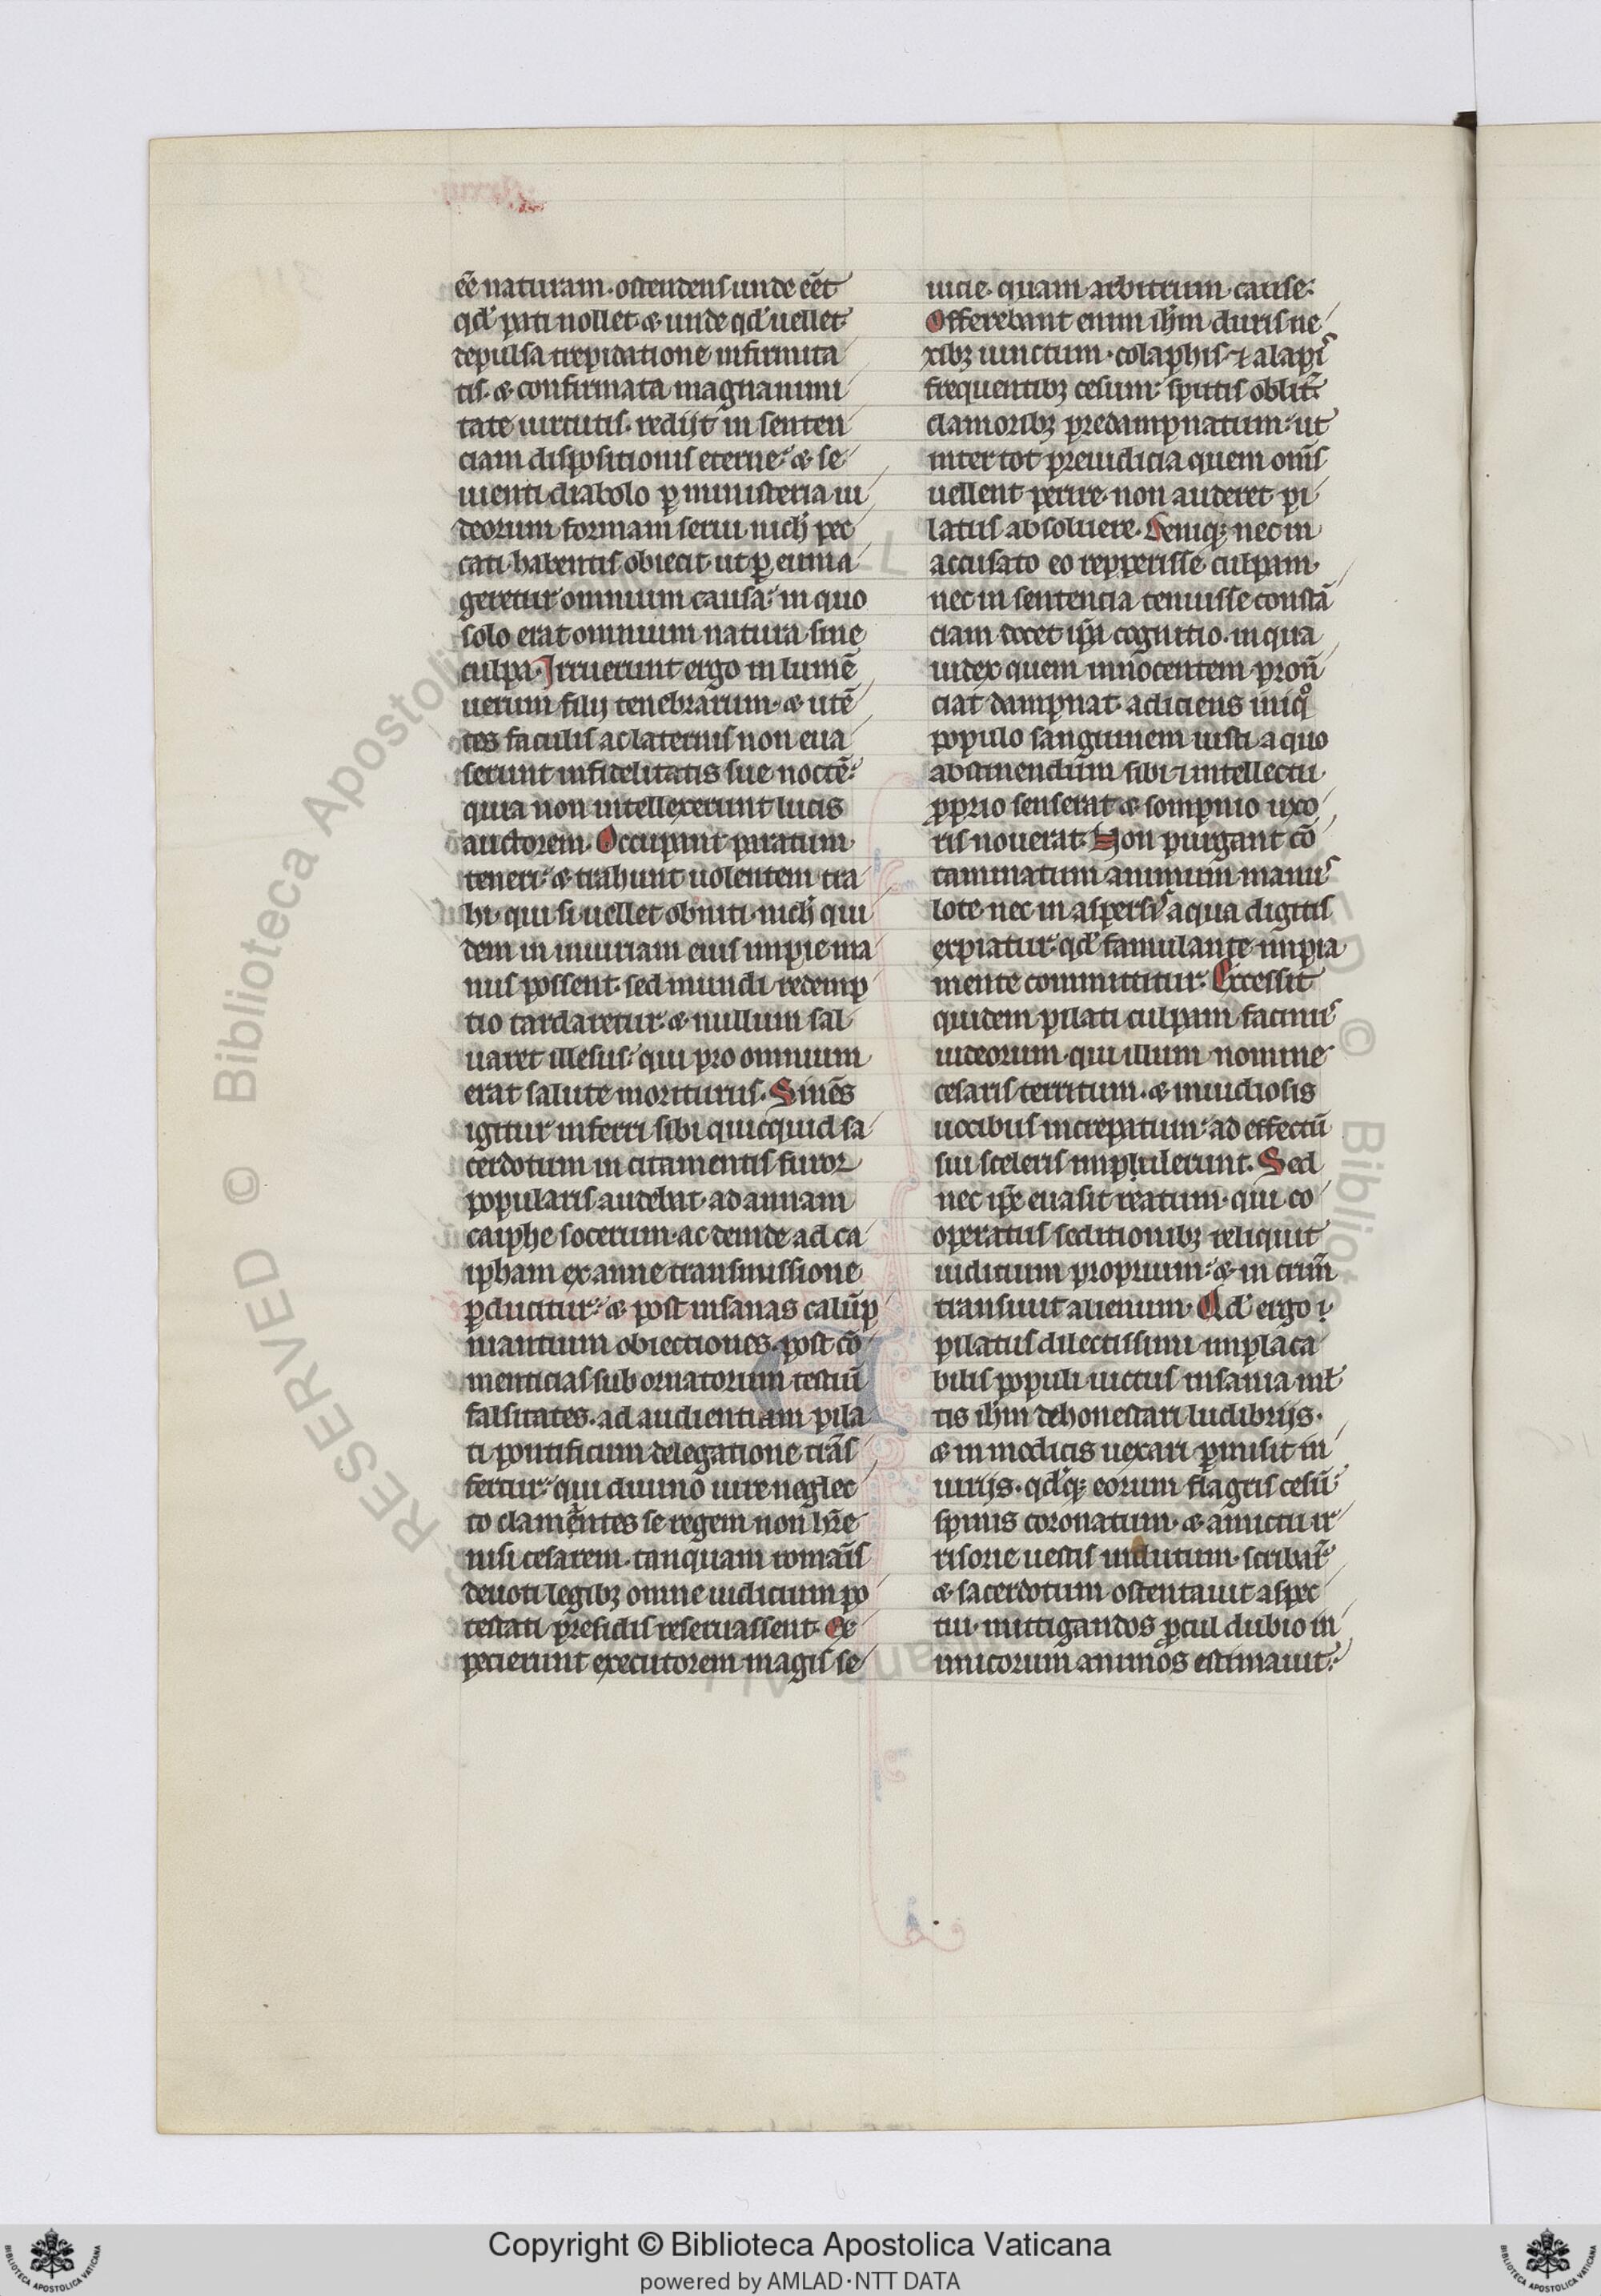 eē naturam· ostendens unde eēt
qd' pati nollet· & unde qd' uellet·
depulsa trepidatione infirmita
tis· & confirmata magnanimi
tate uirtutis· redijt in senten
ciam dispositionis eterne· & se
uienti diabolo ꝑ ministeria iu
deorum formam serui nich' pec
cati habentis obiecit· ut ꝑ eum a
geretur omnium causa· in quo
solo erat omnium natura sine
culpa· Irruerunt ergo in lumē
uerum filij tenebrarum· & utē
tes faculis ac laternis non eua
serunt infidelitatis sue noctē·
quia non intellexerunt lucis
auctorem· Occupant paratum
teneri· & trahunt uolentem tra
hi· qui si uellet obniti· nich' qui
dem in iniuriam eius impie ma
nus possent· sed mundi redemp
tio tardaretur· & nullum sal
uaret illesus· qui pro omnium
erat salute moriturus· Sinēs
igitur inferri sibi quicquid sa
cerdotum in citamentis furor
popularis audebat· ad annam
caiphe socerum· ac deinde ad ca
ipham ex anne transmissione
ꝑducitur· & post insanas calūp
niantium obiectiones· post cō
menticias sub ornatorum testiū
falsitates· ad audientiam pila
ti pontificum delegatione trās
fertur· qui diuino iure neglec
to clamantes se regem non hr̄e
nisi cesarem· tanquam romāis
deuoti legibꝫ omne iudicium po
testati p̄sidis reseruassent· Ex
pecierunt executorem magis se
uicie· quam arbitrum cause·
Offerebant enim ih̄m duris ne
xibꝫ uinctum· colaphis ⁊ alapis
frequentibꝫ cesum· sputis oblit̄·
clamoribꝫ predampnatum· ut
inter tot preiudicia quem om̄s
uellent perire· non auderet pi
latus absoluere· Deniqꝫ nec in
accusato eo repperisse culpam·
nec in sentencia tenuisse constā
ciam docet ip̄a cognitio· in qua
iudex quem innocentem pronū
ciat dampnat· adiciens iniqͦ
populo sanguinem iusti· a quo
abstinendum sibi ⁊ intellectu
ꝓprio senserat & sompnio uxo
ris nouerat· Non purgant cō
taminatum animum manus
lote· nec in aspersis aqua digitis
expiatur· qd' famulante impia
mente committitur· Excessit
quidem pilati culpam facinus
iudeorum· qui illum nomine
cesaris territum· & inuidiosis
uocibus increpatum· ad effectū
sui sceleris impulerunt· Sed
nec ip̄e euasit reatum· qui co
operatus seditionibꝫ reliquit
iudicium proprium· & in crim̄
transiuit alienum· Qd' ergo
pilatus dilectissimi implaca
bilis populi uictus insania mł
tis ih̄m dehonestari ludibrijs·
& in modicis uexari ꝑmisit in
iurijs· qd'qꝫ eorum flagris cesū·
spinis coronatum· & amictu ir
risorie uestis indutum· scribar̄·
& sacerdotum ostentauit aspec
tui· mittigandos ꝓcul dubio in
imicorum animos estimauit·
Copyright © Biblioteca Apostolica Vaticana
powered by AMLAD·NTT DATA